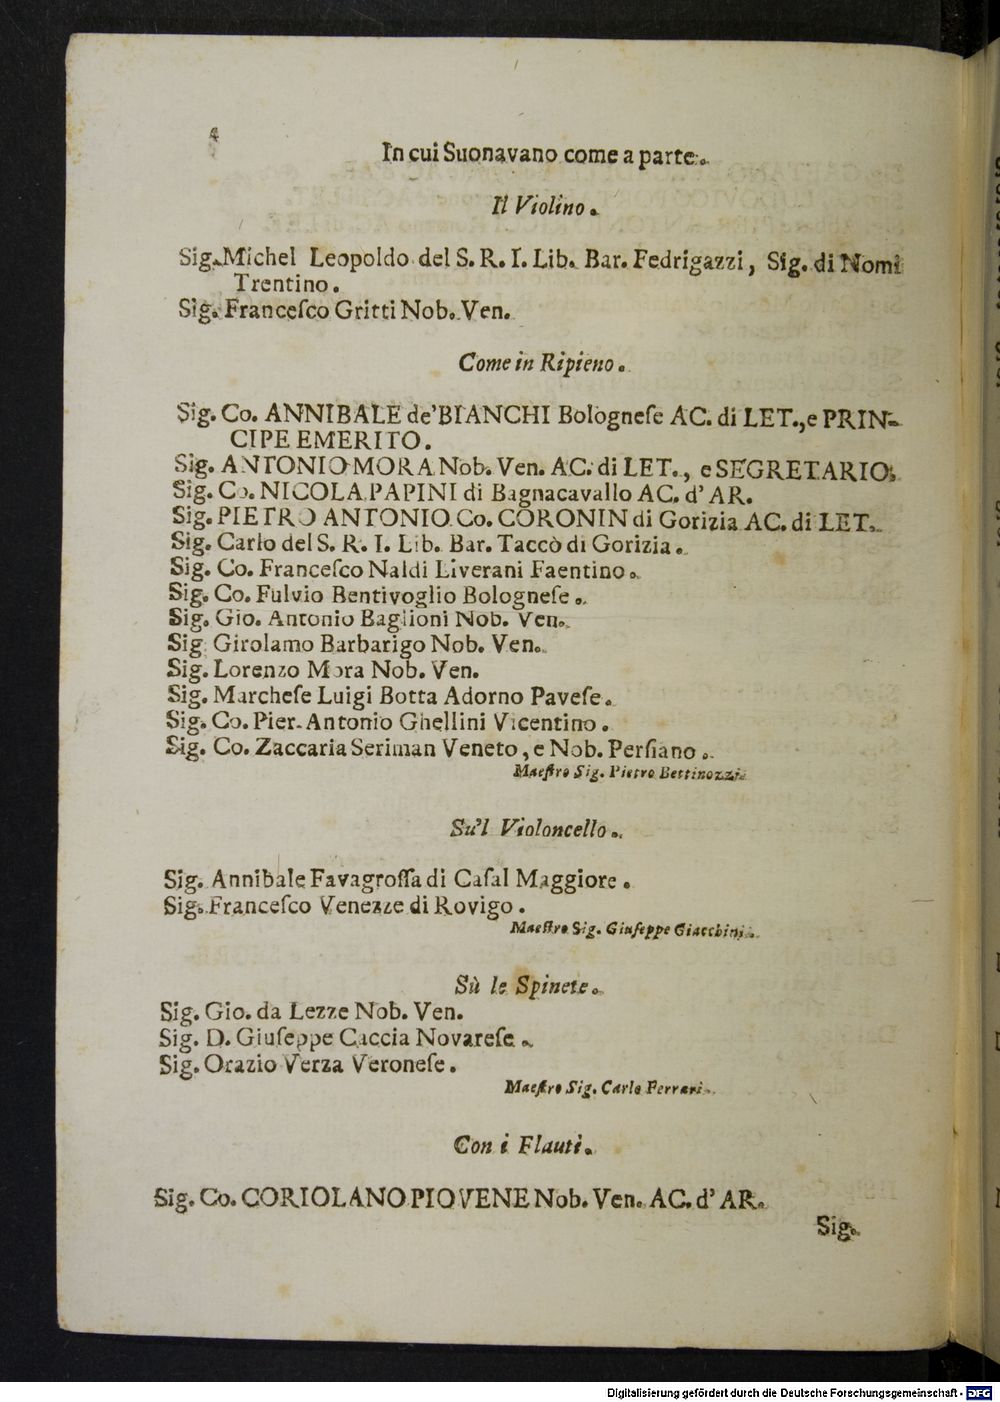 4
In cui Suonavano come a parte.
Il Violino.
Sig. Michel Leopoldo del S. R. I. Lib. Bar. Fedrigazzi, Sig. di Nomi
Trentino.
Sig. Franceſco Gritti Nob. Ven.
Come in Ripieno.
Sig. Co. ANNIBALE de' BIANCHI Bologneſe AC. di LET., e PRIN-
CIPE EMERITO.
Sig. ANTONIO MORA Nob. Ven. AC. di LET., e SEGRETARIO.
Sig. Co. NICOLA PAPINI di Bagnacavallo AC. d' AR.
Sig. PIETRO ANTONIO Co. CORONIN di Gorizia AC. di LET.
Sig. Carlo del S. R. I. Lib. Bar. Taccò di Gorizia.
Sig. Co. Franceſco Naldi Liverani Faentino.
Sig. Co. Fulvio Bentivoglio Bologneſe.
Sig. Gio. Antonio Baglioni Nob. Ven.
Sig. Girolamo Barbarigo Nob. Ven.
Sig. Lorenzo Mora Nob. Ven.
Sig. Marcheſe Luigi Botta Adorno Paveſe.
Sig. Co. Pier-Antonio Ghellini Vicentino.
Sig. Co. Zaccaria Seriman Veneto, e Nob. Perſiano.
Maeſtro Sig. Pietro Bettinozzi.
Su'l Violoncello.
Sig. Annibale Favagroſſa di Caſal Maggiore.
Sig. Franceſco Venezze di Rovigo.
Maeſtro Sig. Giuſeppe Giacchini.
Sù le Spinete.
Sig. Gio. da Lezze Nob. Ven.
Sig. D. Giuſeppe Caccia Novareſe.
Sig. Orazio Verza Veroneſe.
Maeſtro Sig. Carlo Ferrari.
Con i Flauti.
Sig. Co. CORIOLANO PIOVENE Nob. Ven. AC. d' AR.
Sig.
Digitalisierung gefördert durch die Deutsche Forschungsgemeinschaft - DFG